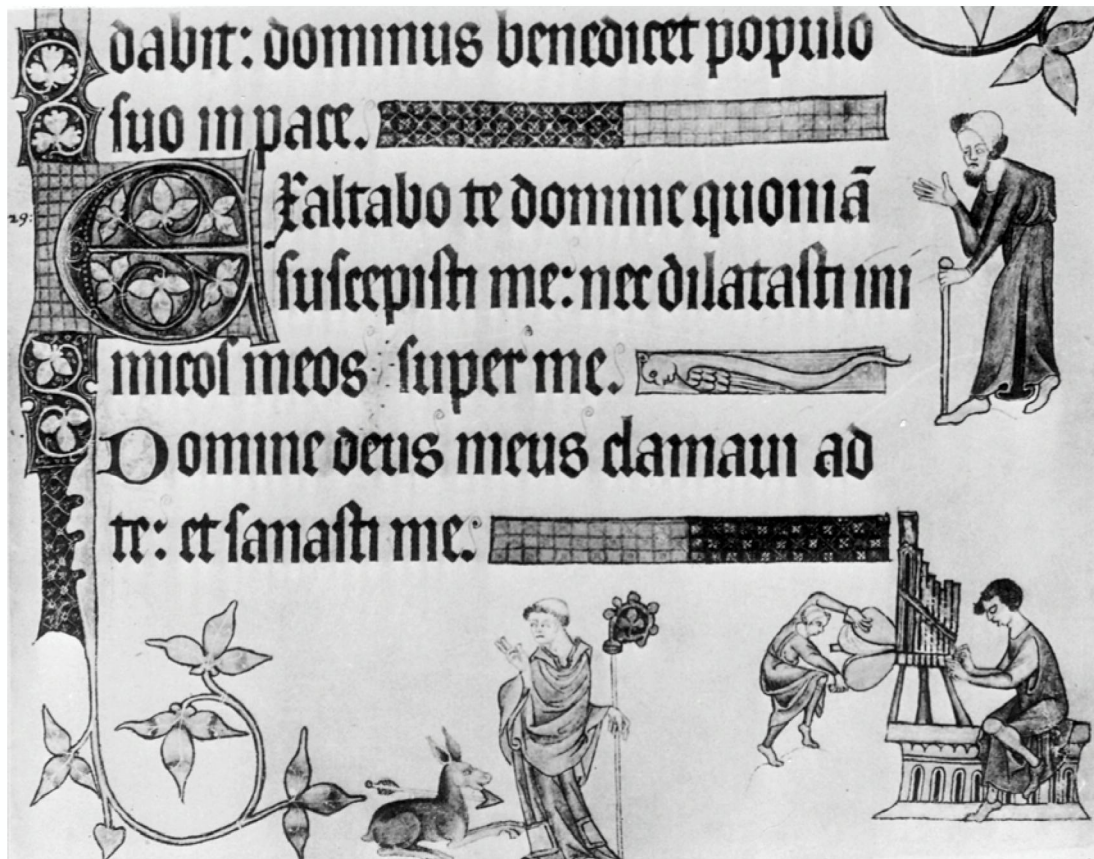 dabit: dominus benedicet populo
suo in pace.
29:
Exaltabo te domine quoniā
suscepisti me: nec dilatasti ini
micos meos super me.
Domine deus meus clamaui ad
te: et sanasti me.